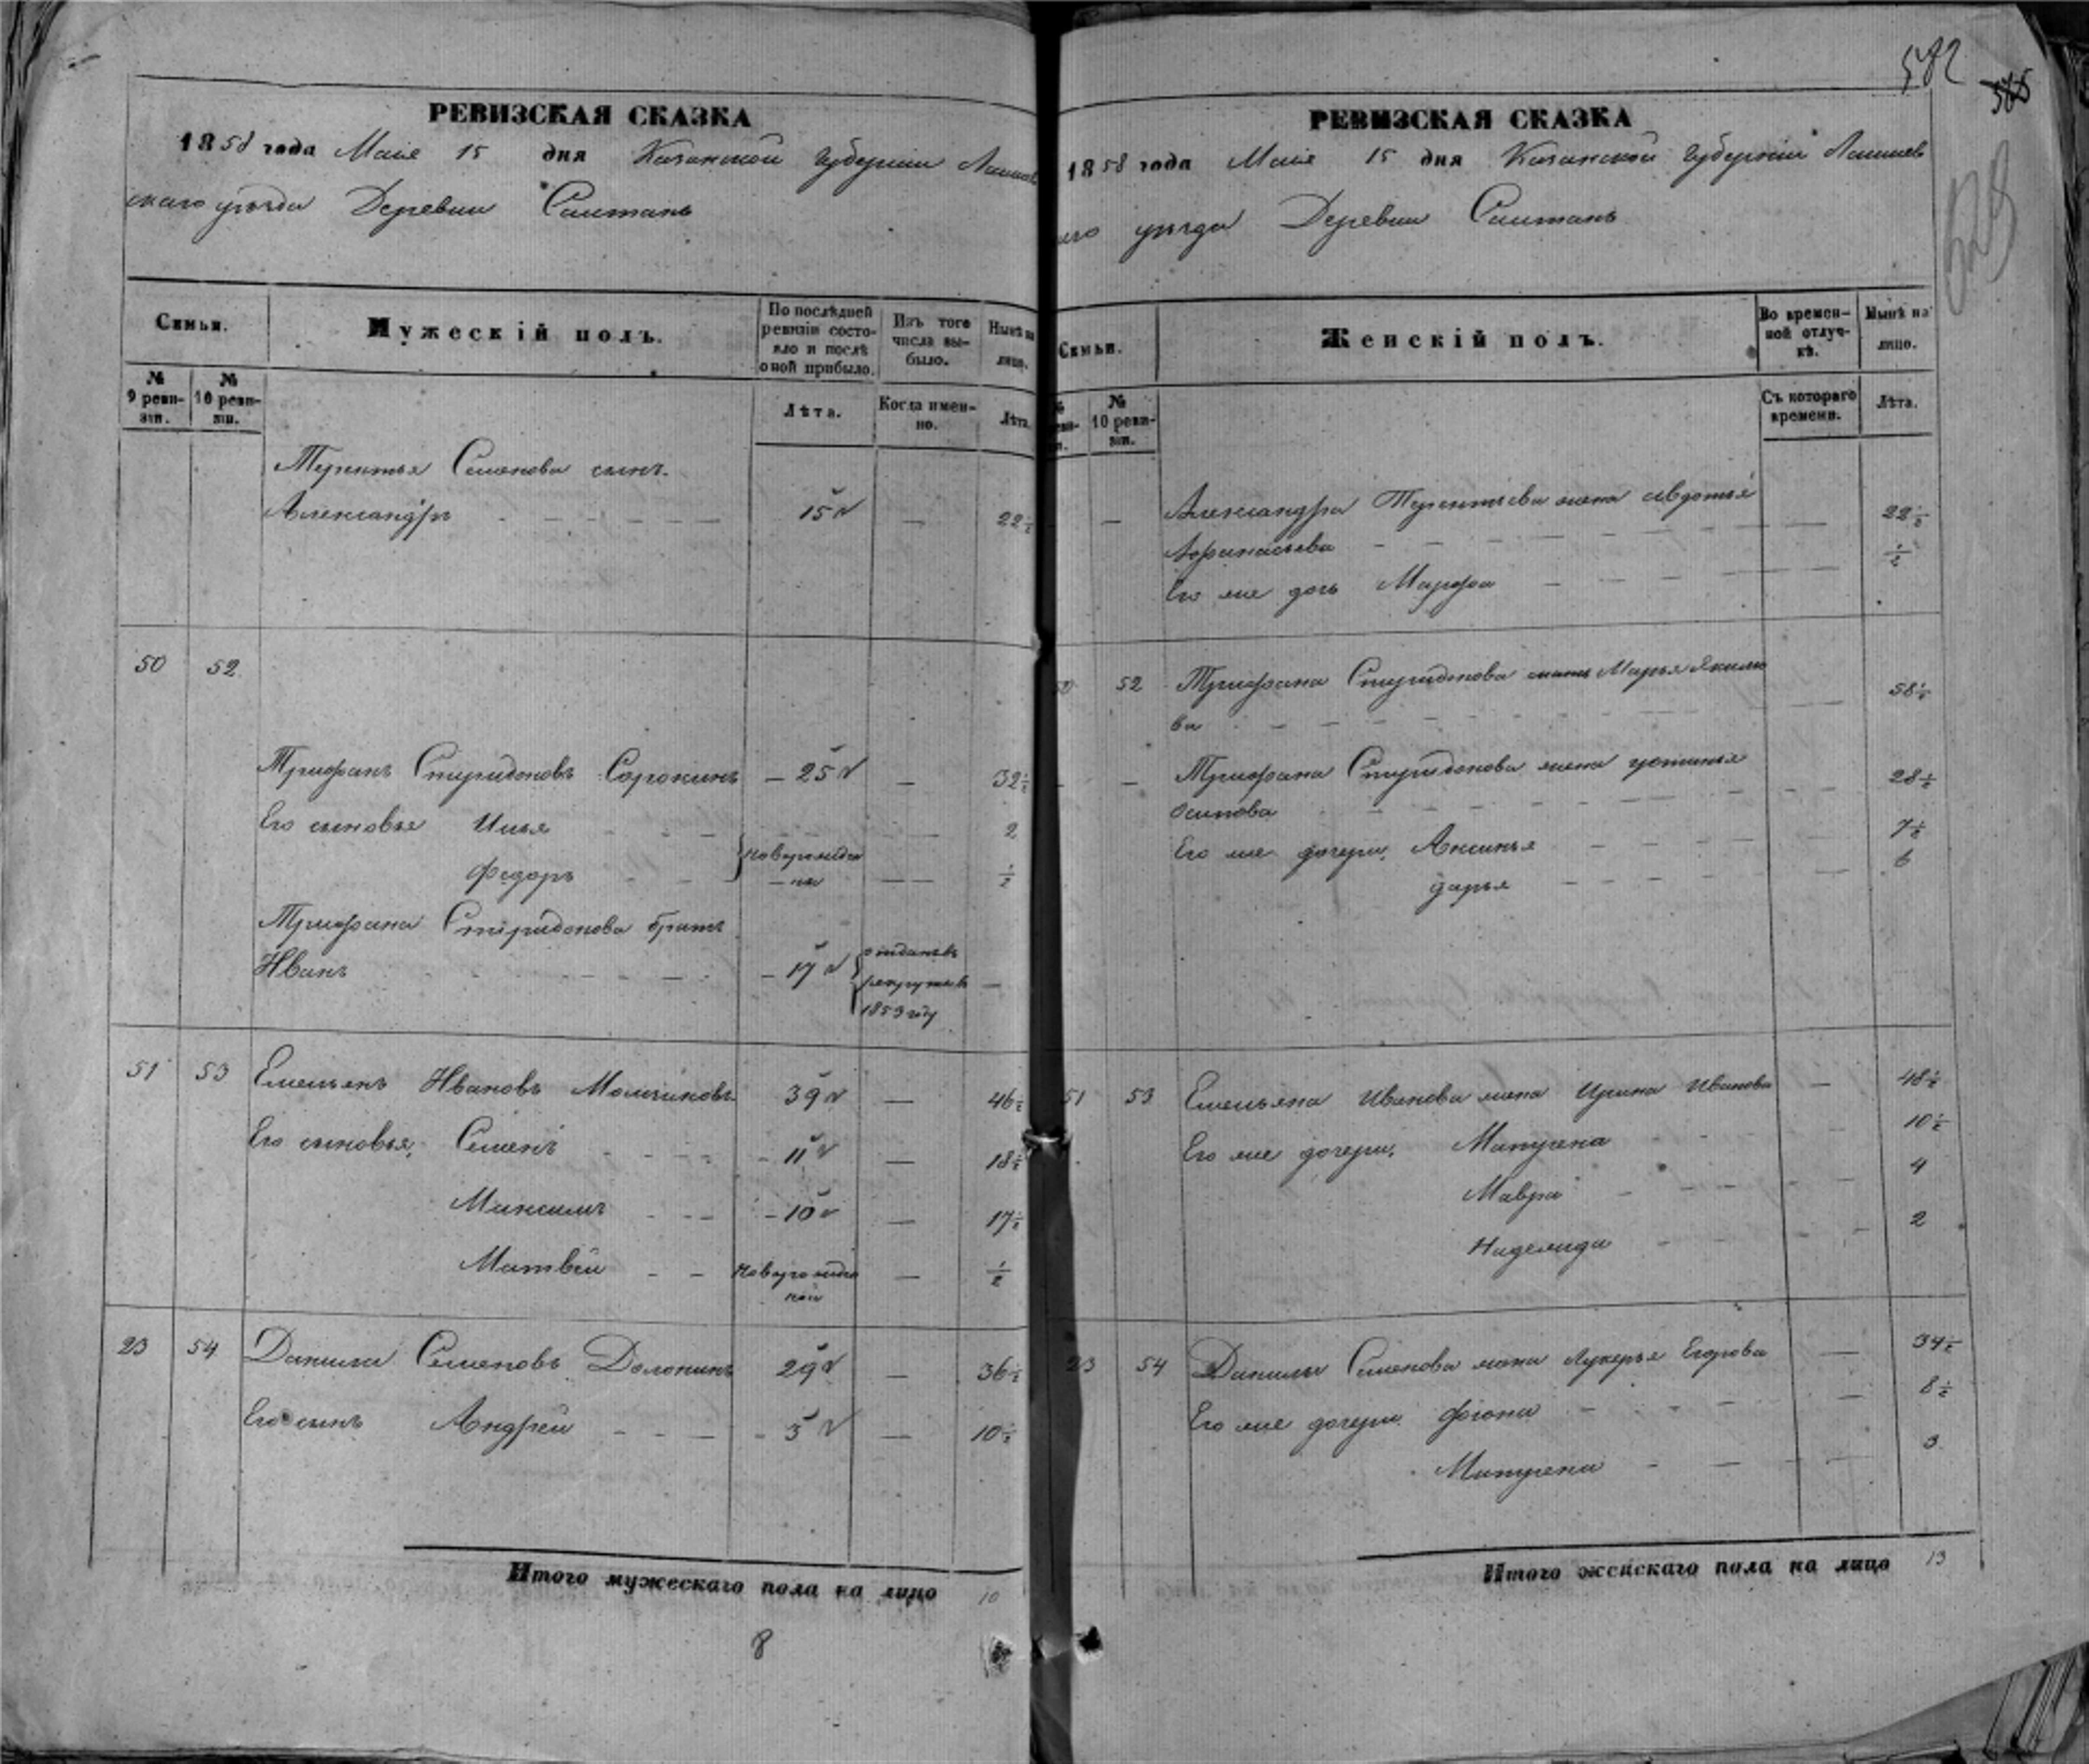 РЕВИЗСКАЯ СКАЗКА
1858 года Маія 15 дня Казанской Губерніи Лаишев
скаго уѣзда Деревни Саитанъ
Семьи.
Мужескій полъ.
По послѣдней ревизіи состояло и послѣ оной прибыло.
Изъ того числа выбыло.
Нынѣ на лицо.
№ 9 ревизіи.
№ 10 ревизіи.
Лѣта.
Когда именно.
Лѣта.
Терентья Семенова сынъ
Александръ 15 — 22½
50 52
Трифанъ Спиридоновъ Сорокинъ 25 — 32½
Его сыновья Илья — 2
Федоръ новорожден
ные — ½
Трифана Спиридонова братъ
Иванъ 17 отданъ въ
рекруты въ
1853 году —
51 53 Емельянъ Ивановъ 39 — 46½
Его сыновья, Семенъ 11 — 18½
Максимъ 10 — 17½
Матвѣй новорожден
ной — ½
23 54 Данила Семеновъ Долонинъ 29 — 36½
Его сынъ Андрей 3 — 10½
Итого мужескаго пола на лицо 10
8
582
565
РЕВИЗСКАЯ СКАЗКА
1858 года Маія 15 дня Казанской Губерніи Лаишев
аго уѣзда Деревни Саитанъ
Семьи.
Женскій полъ.
Во временной отлучкѣ.
Нынѣ на лицо.
№ 10 ревизіи.
Съ котораго времени.
Лѣта.
— Александра Терентьева жена Авдотья
Афанасьева — 22½
Его же дочь Марфа — ½
50 52 Трифана Спиридонова мать Марья Якимо
ва — 58½
— Трифана Спиридонова жена Устинья
Осипова — 28½
Его же дочери, Аксинья — 7½
Дарья — 6
51 53 Емельяна Иванова жена Ирина Иванова — 48½
Его же дочери, Матрена — 10½
Мавра — 4
Надежда — 2
23 54 Данилы Семенова жена Лукерья Егорова — 34½
Его же дочери Фіона — 8½
Матрена — 3
Итого женскаго пола на лицо 13